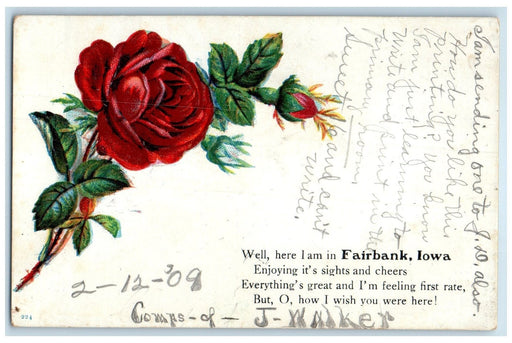 I am sending one to J. D. also.
How do you like this
printing? You know
I am just learning to
write and print in the
primary room,
and can't
write.
Well, here I am in Fairbank, Iowa
Enjoying it's sights and cheers
Everything's great and I'm feeling first rate,
But, O, how I wish you were here!
2-12-'09
Comps-of- J-Walker
224